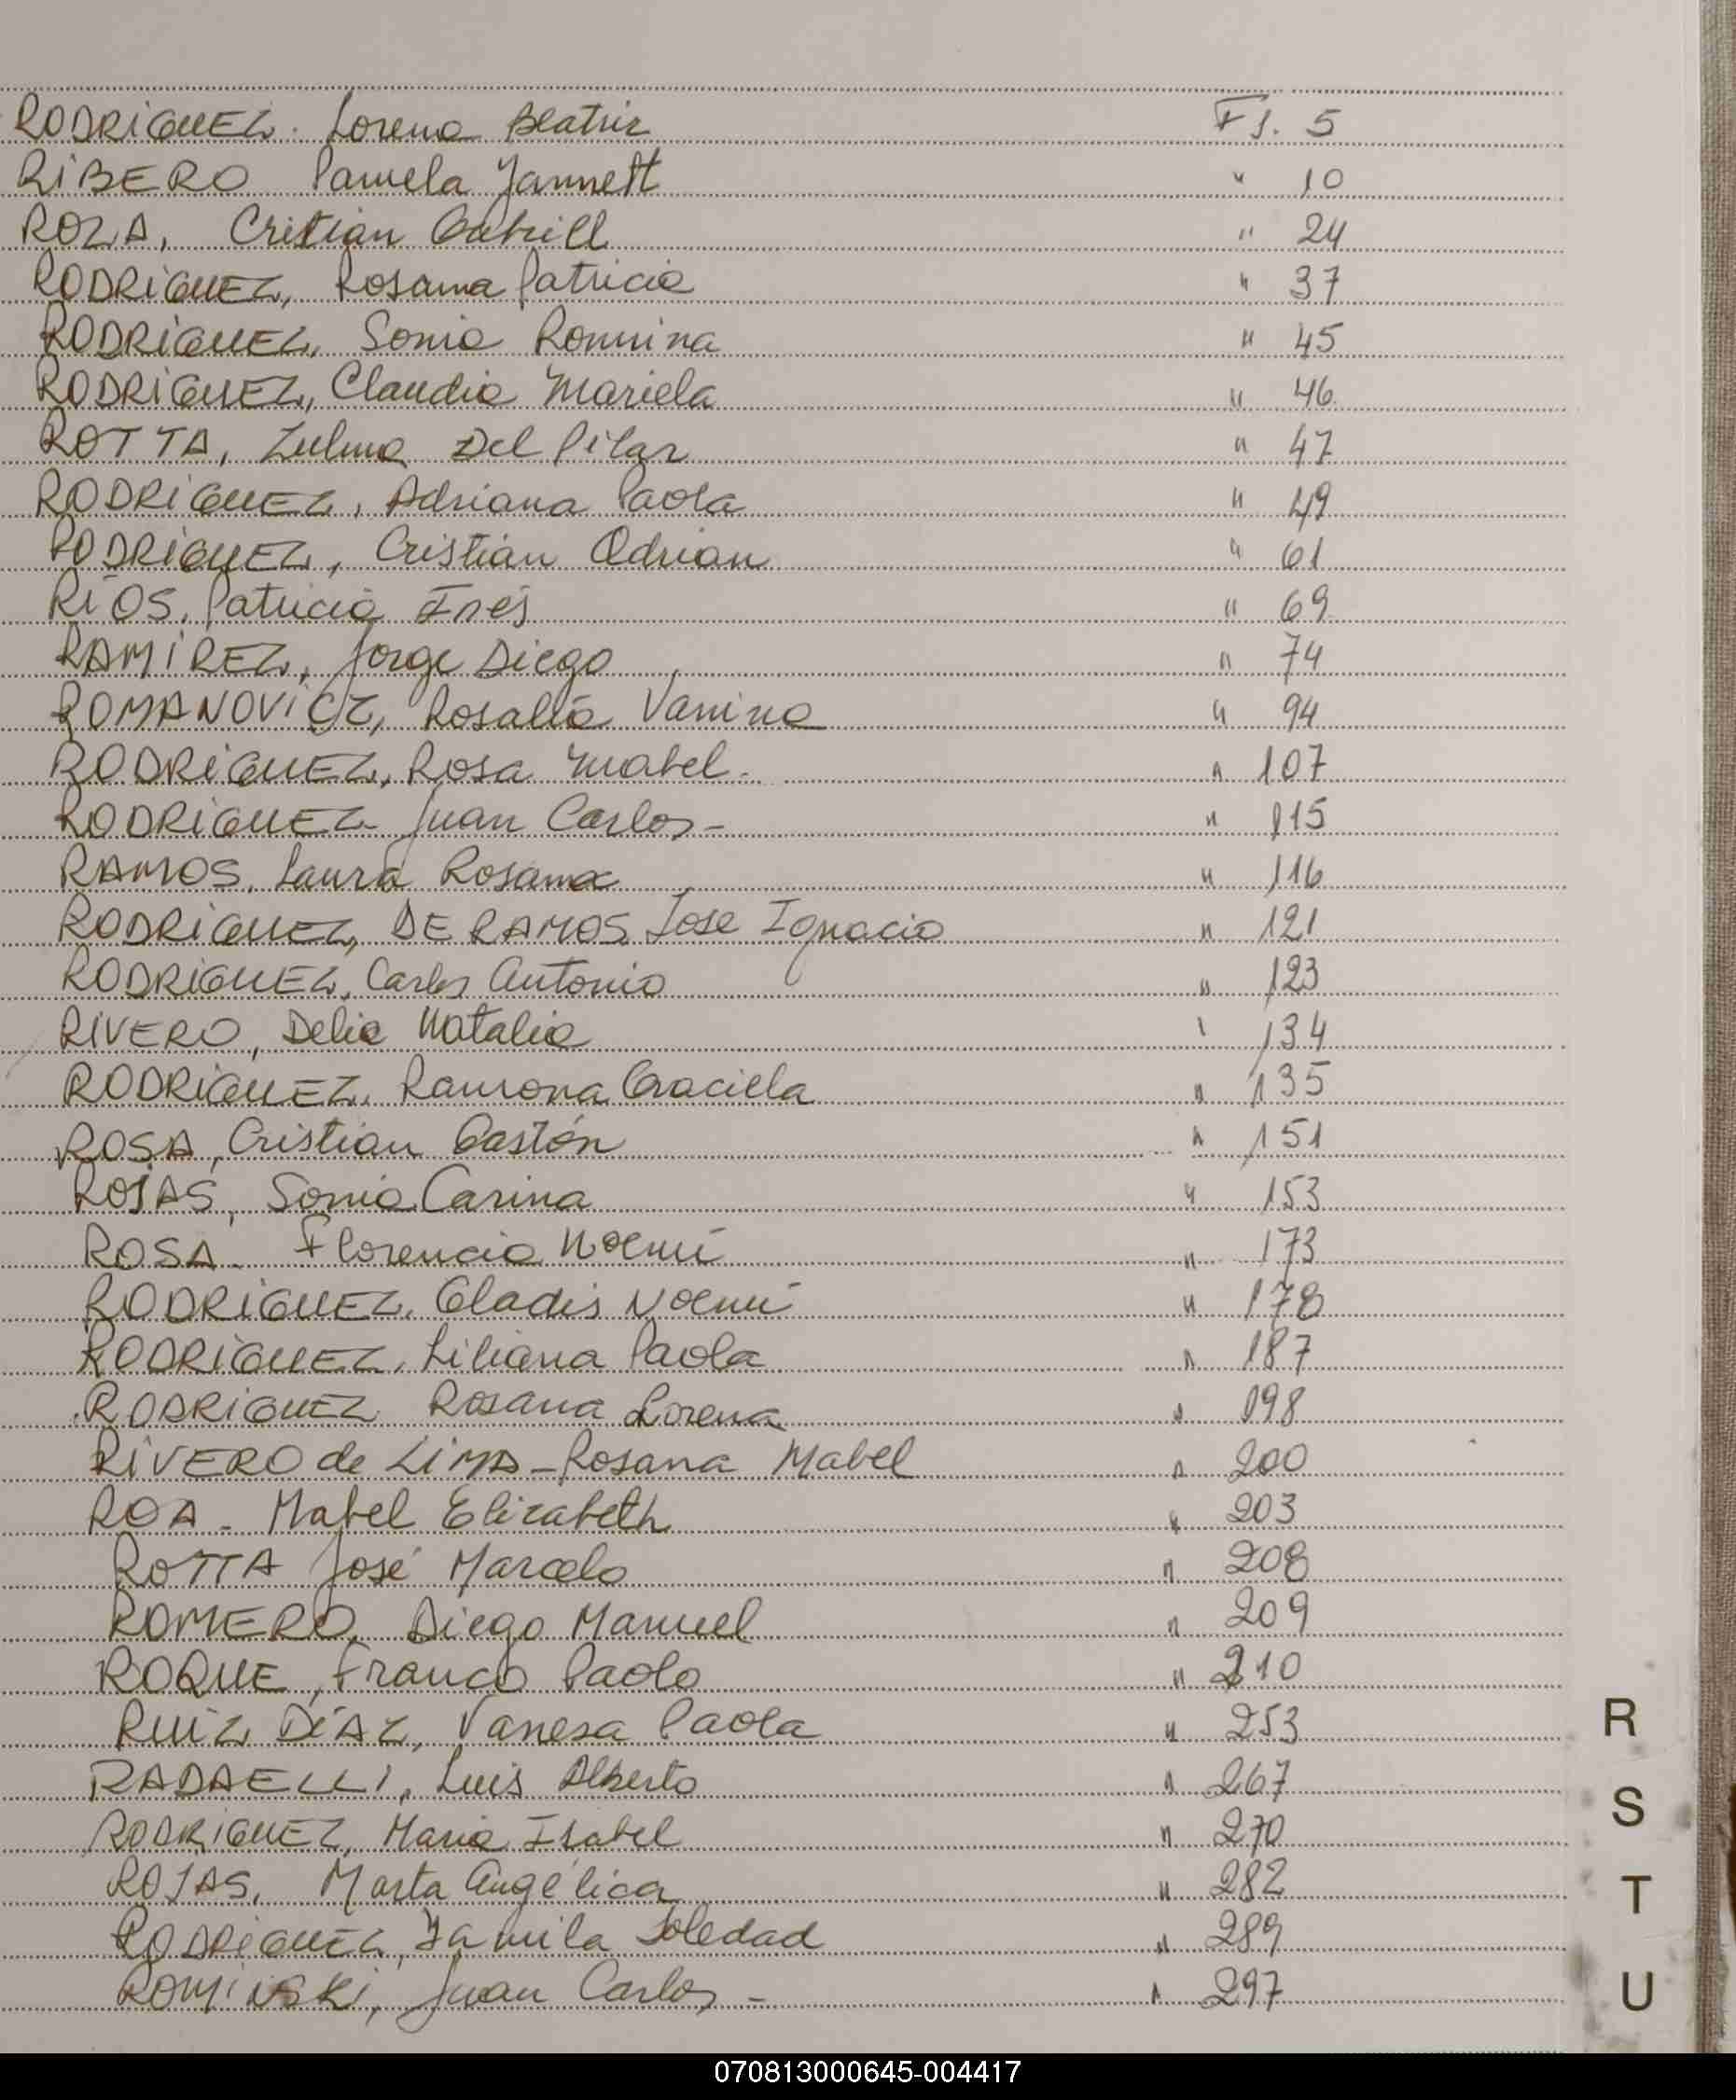 RODRIGUEZ. Lorena Beatriz Fs. 5
RIBERO Pamela Jannett " 10
ROZA, Cristian Gabriell " 24
RODRIGUEZ, Rosana Patricia " 37
RODRIGUEZ, Sonia Romina " 45
RODRIGUEZ, Claudia Mariela " 46
ROTTA, Zulma Del Pilar " 47
RODRIGUEZ, Adriana Paola " 49
RODRIGUEZ, Cristian Adrian " 61
RIOS, Patricia Inés " 69
RAMIREZ, Jorge Diego " 74
ROMANOVICZ, Rosalía Vanina " 94
RODRIGUEZ, Rosa Mabel- " 107
RODRIGUEZ- Juan Carlos- " 115
RAMOS, Laura Rosana " 116
RODRIGUEZ, DE RAMOS, Jose Ignacio " 121
RODRIGUEZ, Carlos Antonio " 123
RIVERO, Delia Natalia " 134
RODRIGUEZ, Ramona Graciela " 135
ROSA, Cristian Gastón " 151
ROJAS, Sonia Carina " 153
ROSA- Florencia Noemí " 173
RODRIGUEZ, Gladis Noemí " 178
RODRIGUEZ, Liliana Paola " 187
RODRIGUEZ Rosana Lorena " 198
RIVERO de LIMA - Rosana Mabel " 200
ROA - Mabel Elizabeth " 203
ROTTA José Marcelo " 208
ROMERO, Diego Manuel " 209
ROQUE, Franco Paolo " 210
RUIZ DIAZ, Vanesa Paola " 253
RADAELLI, Luis Alberto " 267
RODRIGUEZ, Maria Isabel " 270
ROJAS, Marta Angélica " 282
RODRIGUEZ, Yamila Soledad " 289
ROMINSKI, Juan Carlos - " 297
R
S
T
U
070813000645-004417